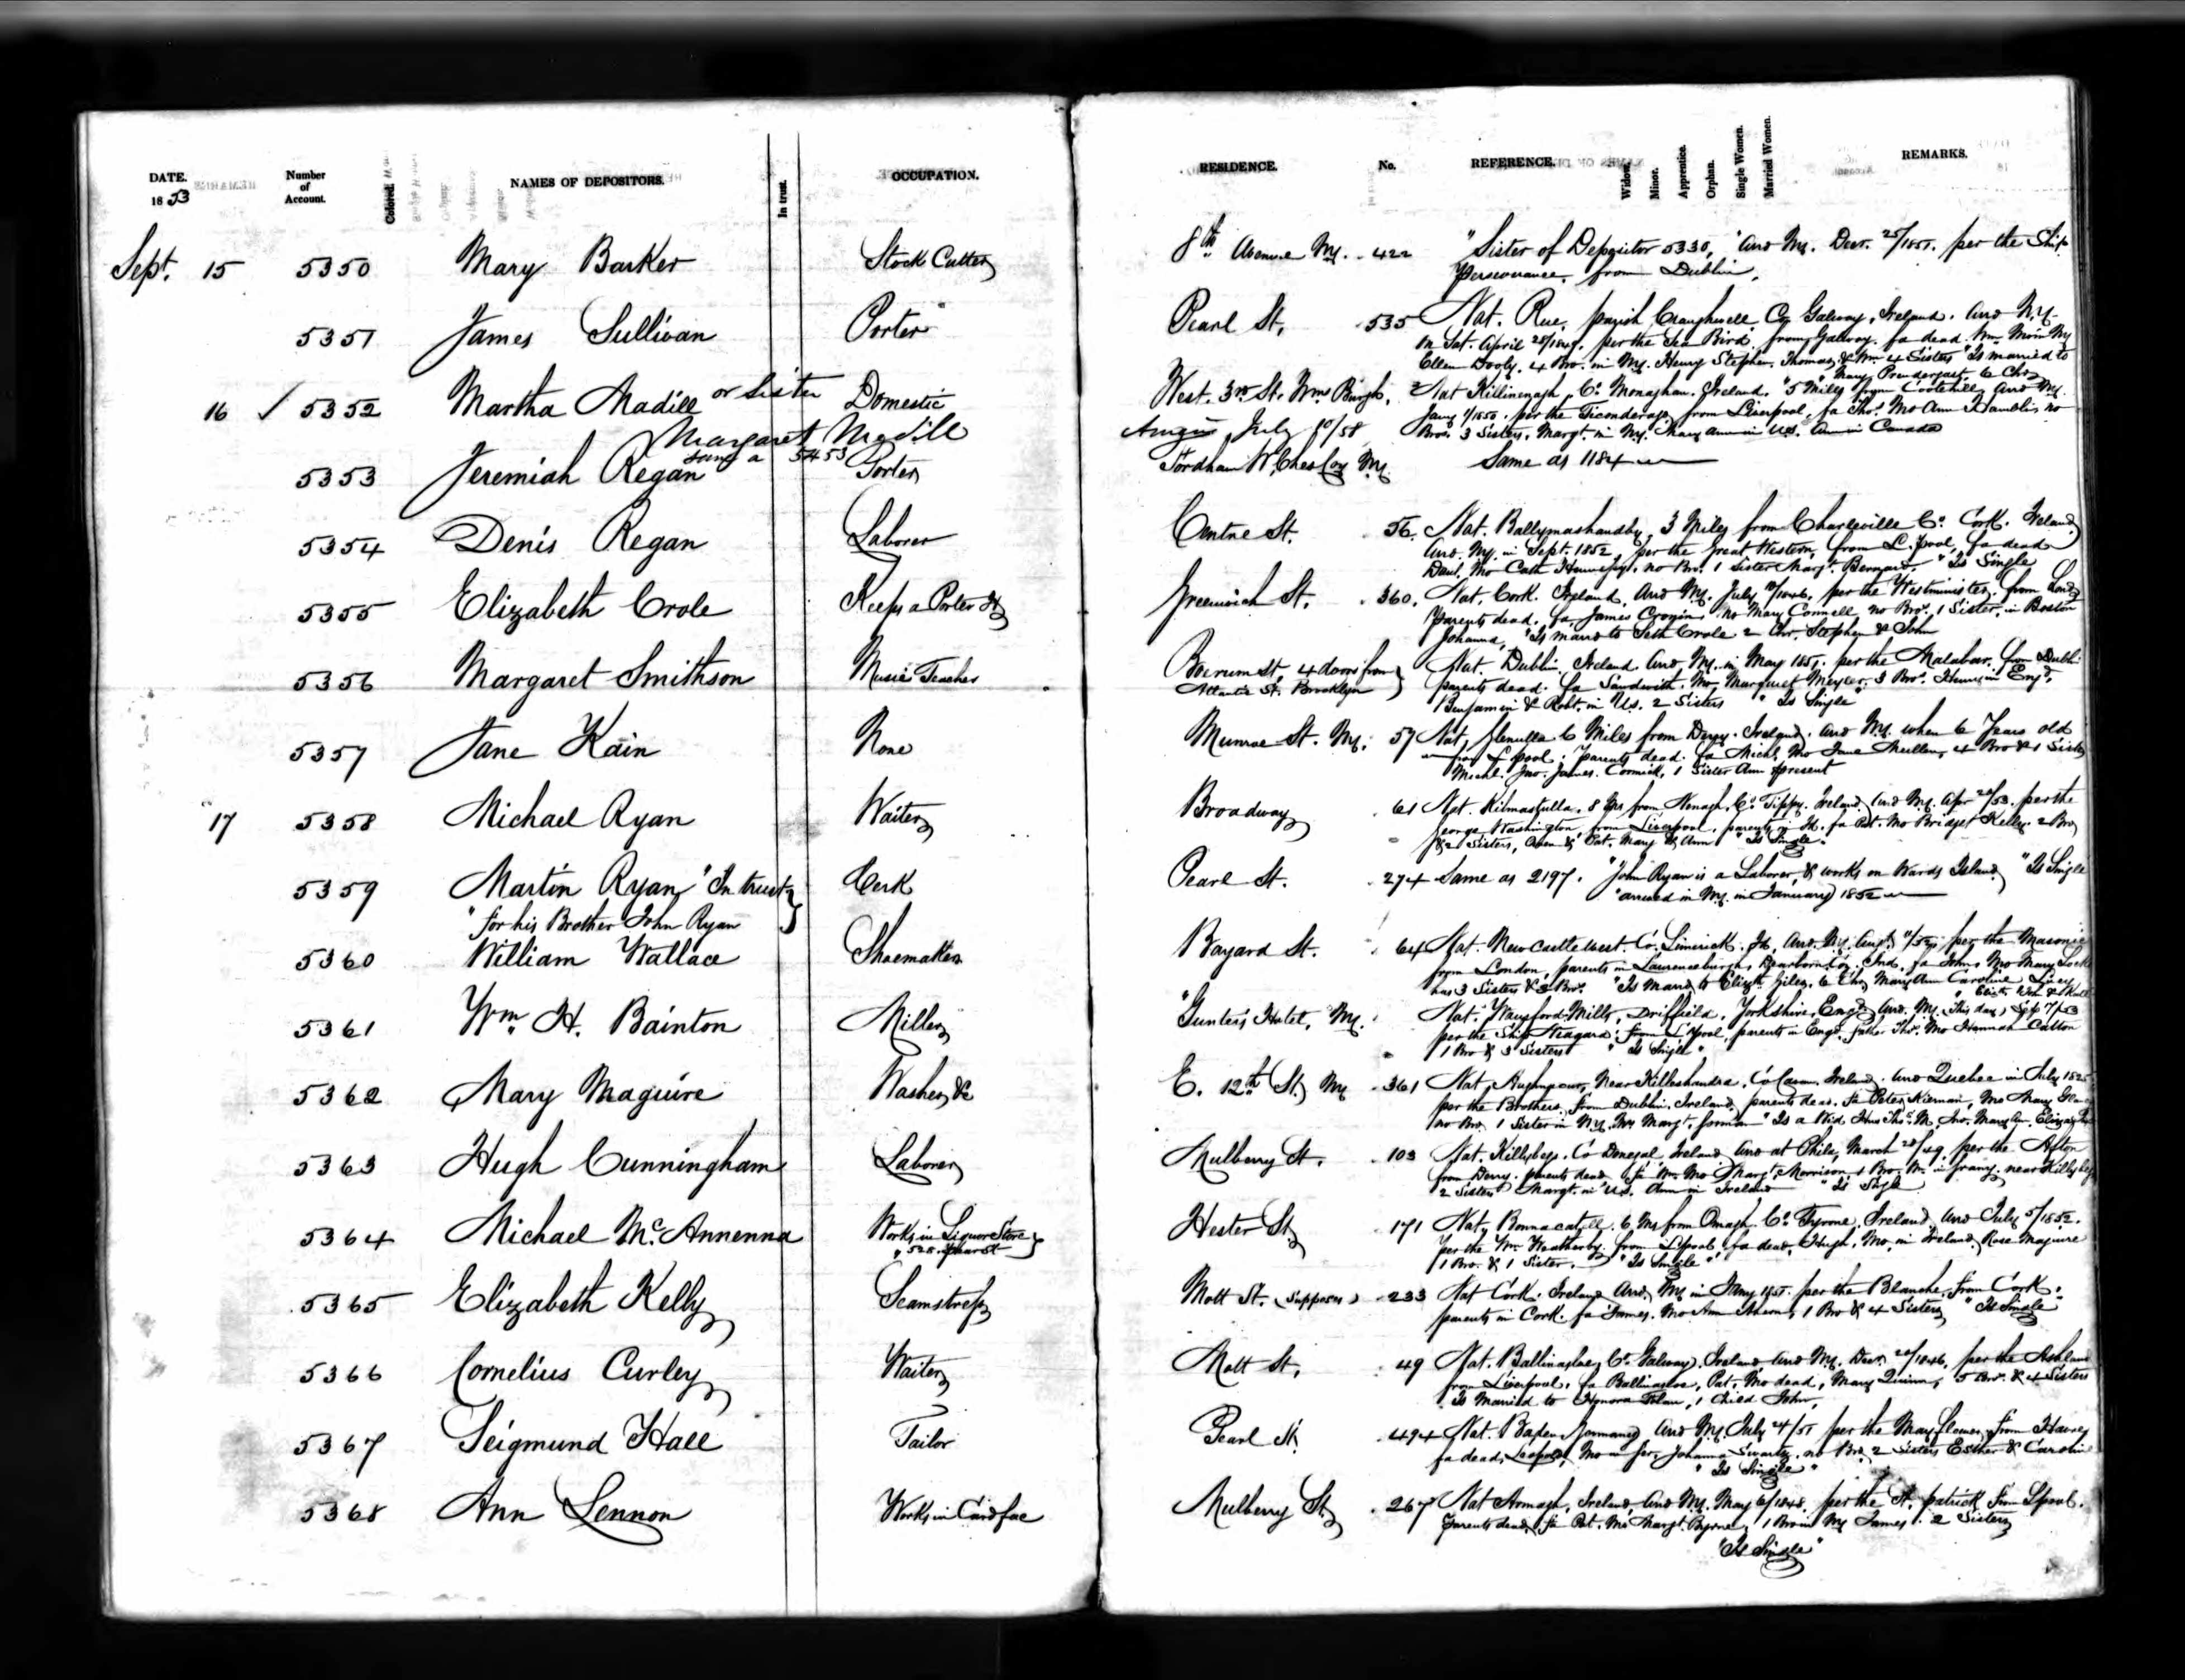 DATE. Number of Account. Colored. NAMES OF DEPOSITORS. In trust. OCCUPATION. RESIDENCE. No. REFERENCE. Widow. Minor. Apprentice. Orphan. Single Women. Married Women. REMARKS.
1853
Sept. 15 5350 Mary Barker Stock Cutter 8th Avenue Ny. 422 "Sister of Depositor 5330," Arrd Ny. Decr. 25/1851. per the Ship
Perseverance, from Dublin.
5351 James Sullivan Porter Pearl St. 535 Nat. Rue, parish Craughwell Co Galway, Ireland. Arrd N.Y.
in Sat. April 28/1849. per the Sea Bird from Galway. fa dead Wm. Mo in Ny
Ellen Dooly. 4 Bro. in Ny. Henry Stephen. Thomas & Wm 4 Sisters "Is married to
Mary Prendergast 6 Chn
16 ✓ 5352 Martha Madill or Sister Domestic West. 3rd St. Wmsburgh. 2 Nat Killinenagh, Co. Monaghan. Ireland. "5 Miles from Cootehill, Arrd Ny.
Margaret Madill July 10/58 Jany 1/1850. per the Ticonderoga from Liverpool, fa Thos. Mo Ann Hamblin no
Bro. 3 Sisters, Margt. in Ny. Mary Ann in U.S. Ann in Canada
same a 5453
5353 Jeremiah Regan Porter Fordham W. Ches Coy Ny. Same as 1184
5354 Denis Regan Laborer Centre St. 56. Nat. Ballymashandby, 3 Miles from Charleville Co. Cork. Ireland
Arrd. Ny. in Sept. 1852, per the Great Western, from L.pool, fa dead
Danl. Mo Cath Hennessy. no Bro. 1 Sister Margt. Bernard. "Is Single
5355 Elizabeth Crole Keeps a Porter H Greenwich St. 360. Nat. Cork. Ireland, Arrd Ny. July 18/1846, per the Westminister, from Lond
Parents dead. fa James Cronin Mo Mary Connell no Bro. 1 Sister, in Boston
Johanna, "Is marrd to Seth Crole 2 Chn. Stephen & John
5356 Margaret Smithson Music Teacher Boerum St. 4 doors from Nat. Dublin, Ireland Arrd Ny. in May 1851. per the Malabar. from Dubli
Atlantic St. Brooklyn parents dead. fa Sandwith. Mo Margaret 3 Bro. Henry in Engd.
Benjamin & Robt. in U.S. 2 Sisters "Is Single"
5357 Jane Kain None Munroe St. Ny. 57 Nat. Glenulla 6 Miles from Derry. Ireland. Arrd Ny. when 6 Years old
from L.pool. Parents dead. fa Michl. Mo Jane Mullen, 4 Bro & 1 Sister
Michl. Jno. James. Cormick, 1 Sister Ann present
17 5358 Michael Ryan Waiter Broadway 61 Nat. Kilmastulla. 8 Ms from Nenagh, Co. Tippy. Ireland. Arrd Ny. Apr 20/53. per the
George Washington, from Liverpool. parents in Id. fa Pat. Mo Bridget Kelly. 2 Bro
& 2 Sisters, Owen & Pat. Mary & Ann "Is Single.
5359 Martin Ryan "In trust Clerk Pearl St. 274 Same as 2197. "John Ryan is a Laborer & works on Wards Island. "Is Single
"for his Brother John Ryan "arrived in Ny. in January 1852
5360 William Wallace Shoemaker Bayard St. 64 Nat. Newcastle west. Co. Limerick. Id. Arrd. Ny. Augt. 11/52, per the Masonic
from London, parents in Lawrenceburgh, Dearborn Co. Ind. fa John Mo Mary Locke
has 3 Sisters & 3 Bro. "Is Marrd to Elizth. Giles. 6 Chn Mary Ann Caroline Lucy
Elizth. Wm &
5361 Wm. H. Bainton Miller Gunters Hotel, Ny. Nat. Wansford Mills, Driffield, Yorkshire, Engd. Arrd. Ny. (This day) Sep 17/53
per the Ship Niagara from L'pool, parents in Engd. father Thos. Mo Hannah Catton
1 Bro & 3 Sisters "Is Single"
5362 Mary Maguire Washes, &c E. 12th St. Ny 361 Nat. near Killeshandra, Co Cavan. Ireland. Arrd Quebec in July 1825
per the Brothers from Dublin. Ireland, parents dead. fa Peter Kiernan, Mo Mary
no Bro. 1 Sister in Ny. Margt. Gorman "Is a Wid Hus Thos. M. Jno. Mary An. Eliza
5363 Hugh Cunningham Laborer Mulberry St. 103 Nat. Killybegs. Co Donegal Ireland Arrd at Phila, March 28/49. per the Afton
from Derry. parents dead fa Wm. Mo Margt. Morrison, 1 Bro. Wm. in near Killybegs
2 Sisters Margt. in U.S. Ann in Ireland "Is Sigle
5364 Michael McAnnenna Works in Liquor Store Hester St. 171 Nat. Bonnacatyll. 6 Ms from Omagh. Co. Tyrone, Ireland, Arrd July 5/1852.
525 Pearl St per the Wm. Weatherby. from L.pool, fa dead, Hugh, Mo. in Ireland, Rose Maguire
1 Bro. & 1 Sister. "Is Single"
5365 Elizabeth Kelly Seamstress Mott St. (Supposes) 233 Nat Cork. Ireland Arrd, Ny in Jany 1851. per the Blanche, from Cork.
parents in Cork. fa James. Mo Ann Ahern, 1 Bro & 4 Sisters "Is Single
5366 Cornelius Curley Waiter Mott St. 49 Nat. Ballinasloe, Co. Galway. Ireland Arrd Ny. Decr. 20/1846. per the Ashland
from Liverpool. fa Ballinasloe, Pat. Mo dead, Mary Quinn, 5 Bro. & 4 Sisters
Is Married to Honora Folan, 1 Child John,
5367 Seigmund Hall Tailor Pearl St. 494 Nat. Baden Germany Arrd Ny July 24/51 per the May flower, from Havre
fa dead, Leopold, Mo in Ger. Johanna Swartz. no Bro 2 Sisters Esther & Caroline
"Is Single"
5368 Ann Lennon Works in Card fac Mulberry St. 267 Nat Armagh, Ireland Arrd Ny. May 6/1848. per the St. patrick from Lpool.
Parents dead, fa Pat. Mo Margt. Byrne, 1 Bro in Ny James. 2 Sisters
"Is Single"